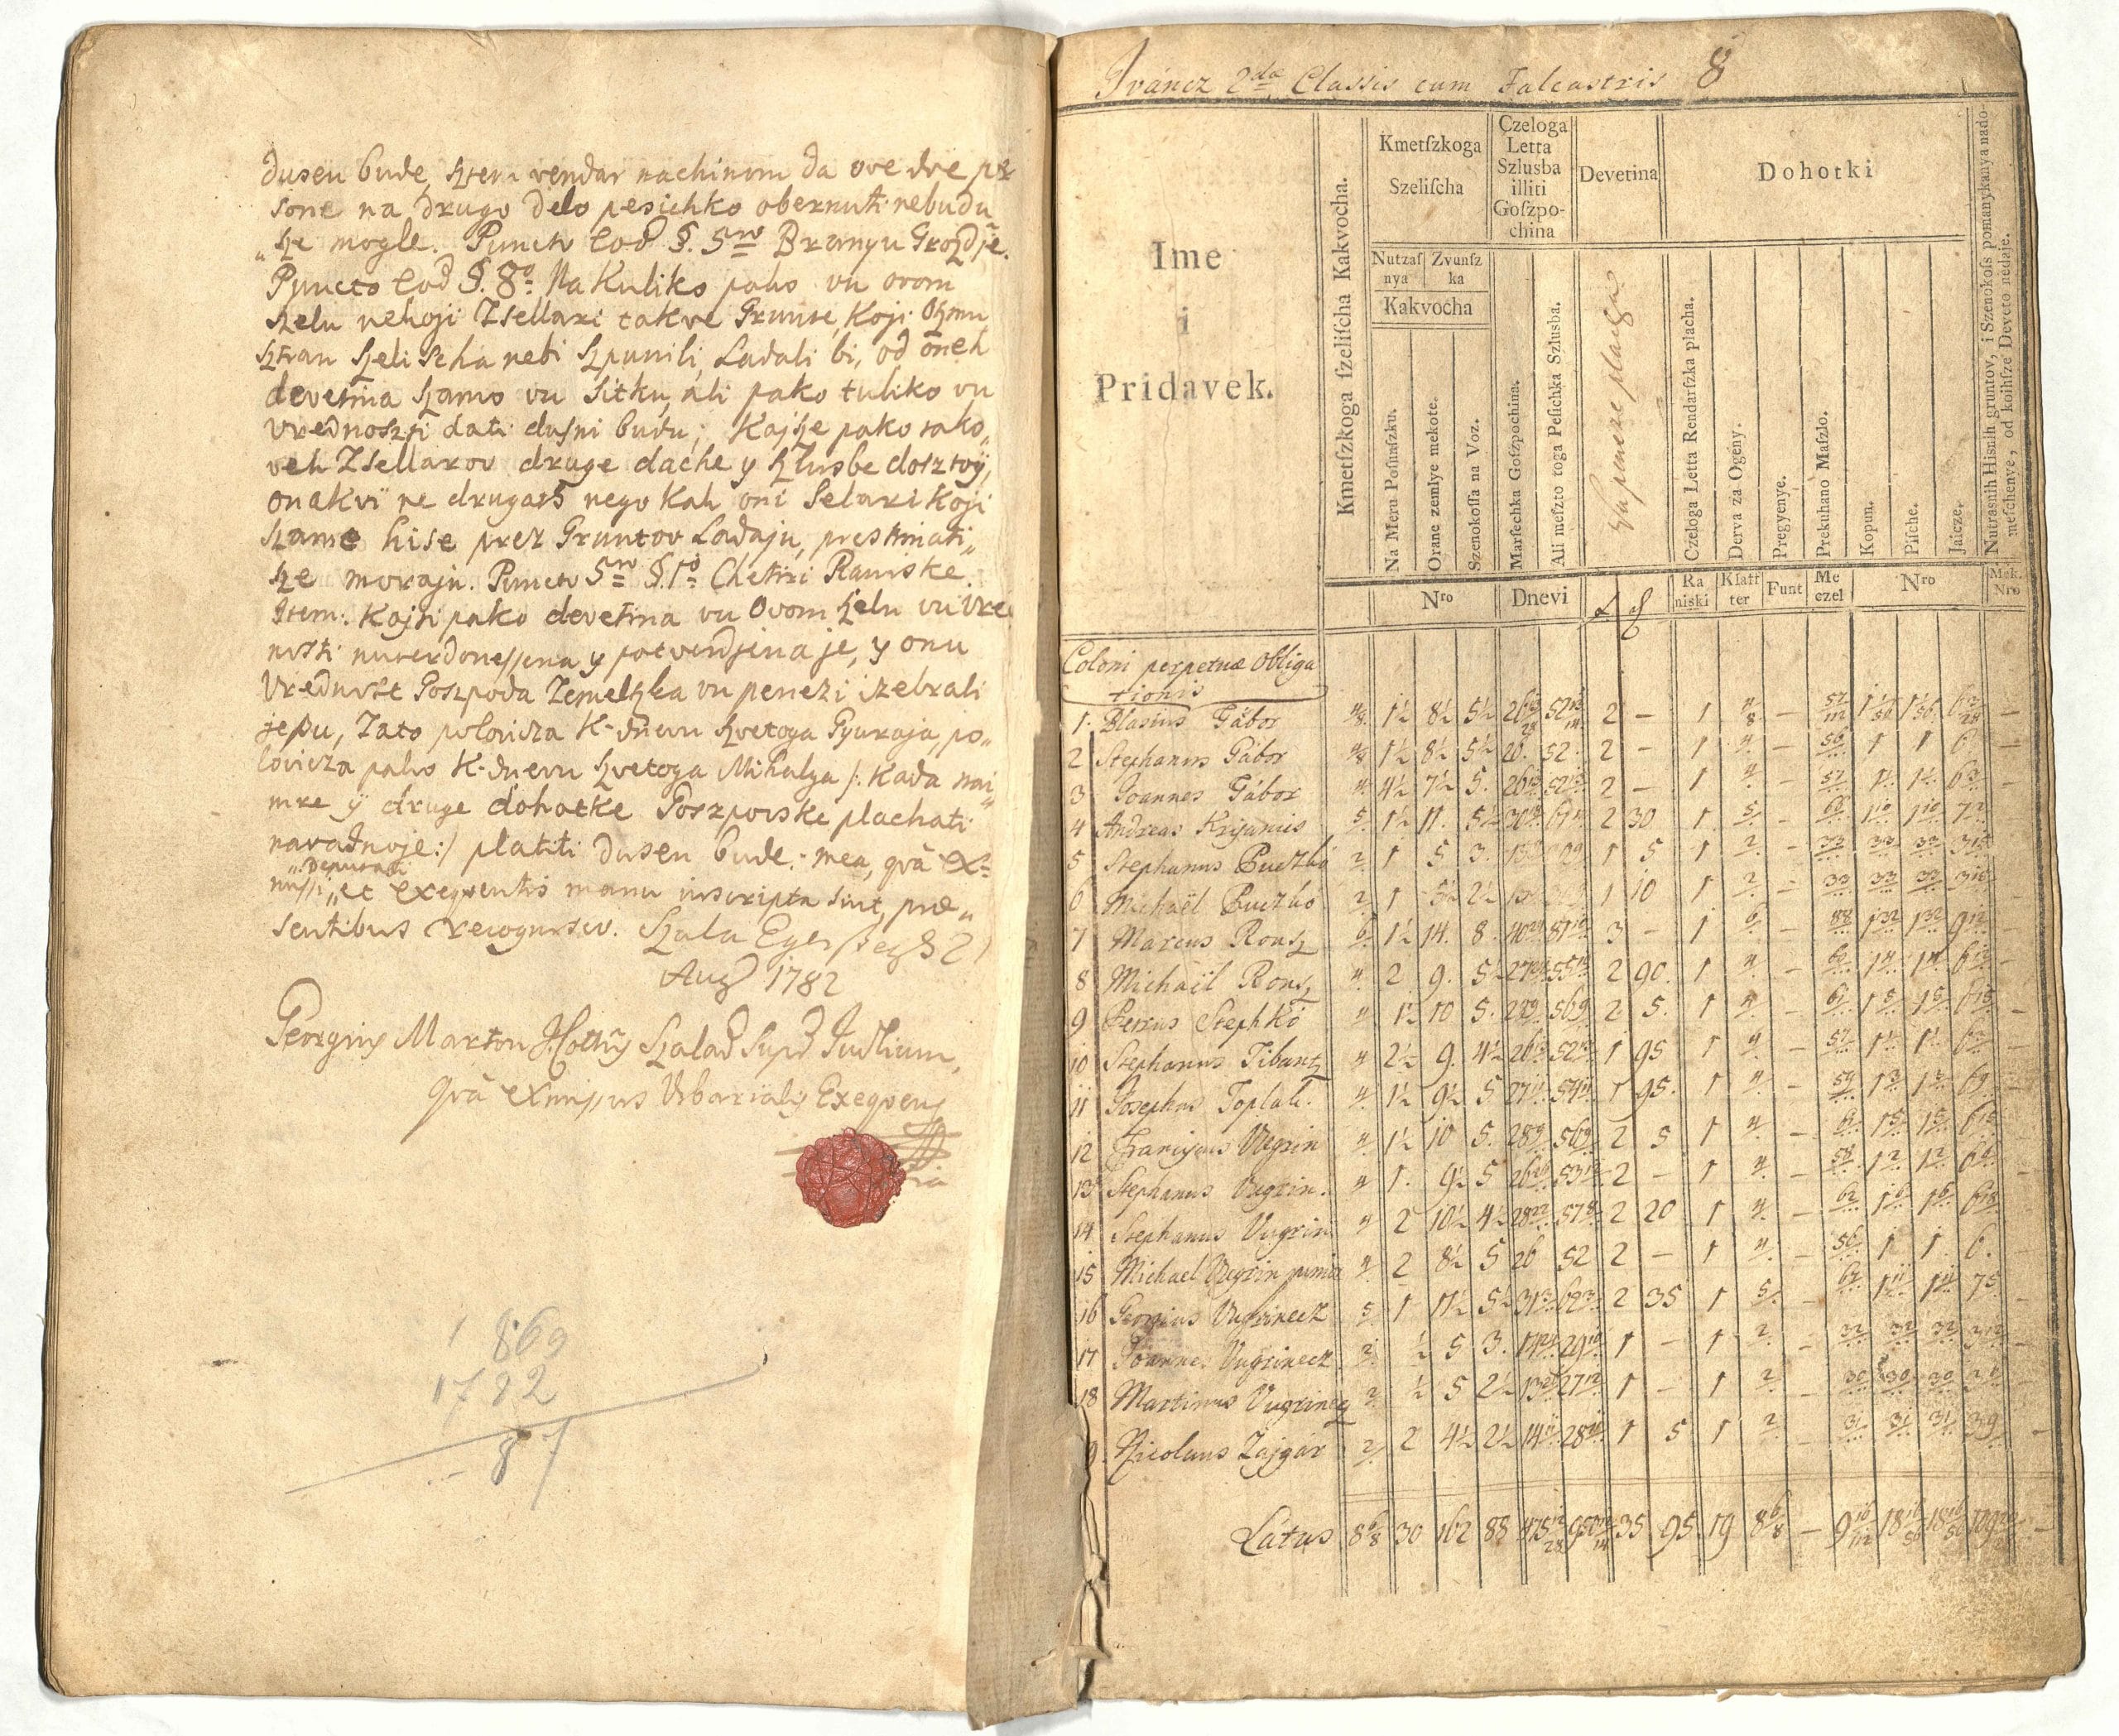 dusen bude, szterm vendar nachinom da ove dve per
sone na drugo delo pesichko obernuti nebudu
sze mogle. Puncto Eod §. 5to Brangu Grozdje.
Puncto Eod §. 8o Na Kuliko pako vu ovom
szelu nekoji Zsellari takve Grunte, koji Oszmu
sztran szelischa nebi szpunili, Ladali bi, od oneh
devetina szamo vu sitku, ali pako tuliko vu
vrednoszti dati dusni budu; Kajsze pako tako„
veh Zsellarov druge dache y szlusbe dosztoÿ,
onakvi ne drugach nego kak oni Selari koji
szame hise prez Gruntov Ladaju, prestimati„
sze moraju. Puncto 5to §. 1o Chetiri Raniske.
Item: Kajti pako devetina vu Ovom szelu vu vre
nosti nuterdonessena y potverdjena je, y onu
Vrednost Goszpoda Zemelszka vu penezi izebrali
jeszu, Zato polovicza K-dnevu szvetoga Gyuraja, po„
lovicza pako K-dnevu szvetoga Mihalya /: Kada nai„
mre ÿ druge dohotke Goszpoiske plachati
navadnoje :/ platiti dusen bude. mea, quà
Deputati
et exequentis manu inscripta sint, præ„
sentibus recognosco. Szala Egerszegh 21
Aug 1782
Georgius Marton
quà exmissus Urbarialis Exequens
1869
1782
87
Iváncz 2da Classis cum Falcastris 8
Ime
i
Pridavek.
Kmetſzkoga ſzeliſcha Kakvocha.
Kmetſzkoga
Szeliſcha
Nutzaſ
nya
Zvunſz
ka
Kakvocha
Na Meru Poſunſzku.
Orane zemlye mekote.
Szenokoſſa na Voz.
Czeloga
Letta
Szlusba
illiti
Goſzpo-
china
Marſechka Goſzpochina.
Ali meſzto toga Peſichka Szlusba.
Devetina
Vu peneze placha
Dohotki
Czeloga Letta Rendarſzka placha.
Derva za Ogeny.
Pregyenye.
Prekuhano Maſzlo.
Kopun.
Piſche.
Jaicze.
Nutrasnih Hisnih gruntov, i Szenokoſs pomanykanya nado-
meſchenye, od koihſze Deveto nedaje.
Nro
Dnevi
Ra
niski
Klaff
ter
Funt
Me
czel
Nro
Mek.
Nro
Coloni perpetuæ Obliga
tionis
1. Blasius Gábor 4/8 1½ 8½ 5½ 2 — 1 4/8 —
2 Stephanus Gábor 4/8 1½ 8½ 5½ 26. 52. 2 — 1 4 — 56 1 1 6 —
3 Joannes Gábor 4 4½ 7½ 5. 2 — 1 4 — 57
4 Andreas Krijanics 5 1½ 11. 5½ 2 30 1 5 —
5 Stephanus Puczkó 2 1 5 3. 1 5 1 2 — 33 33 33
6 Michaël Puczkó 2 1 5½ 2½ 1 10 1 2 — 33 33 33
7 Marcus Rousz 6 1½ 14. 8. 3 — 1 6 — 88
8 Michaël Rousz 4 2 9. 5½ 2 90. 1 4 — 60
9 Petrus Stephkó 4 1½ 10 5. 2. 5. 1 4 — 61
10 Stephanus Tibautz 4 2½ 9. 4½ 1 95 1 4 — 57
11 Josephus Toplak 4 1½ 9½ 5 1 95. 1 4 — 59
12 Franciscus Vugrin 4 1½ 10 5. 2 5 1 4 — 61
13 Stephanus Vugrin. 4 1. 9½ 5 2 — 1 4 — 58
14 Stephanus Vugrin 4 2 10½ 4½ 2 20 1 4 — 62
15 Michael Vugrin junior 4 2 8½ 5 26 52 2 — 1 4 — 56 1 1 6. —
16 Georgius Vugrinecz 5 1 11½ 5½ 2 35 1 5 — 67
17 Joannes Vugrinecz 2 ½ 5 3. 1 — 1 2 — 32 32 32
18 Martinus Vugrinecz 2 ½ 5 2½ 1 — 1 2 — 30 30 30
9. Nicolaus Zajgár 2 2 4½ 2½ 1 5 1 2 — 31 31 31
Látus 8 6/8 30 162 88 35 95 19 8 6/8 —